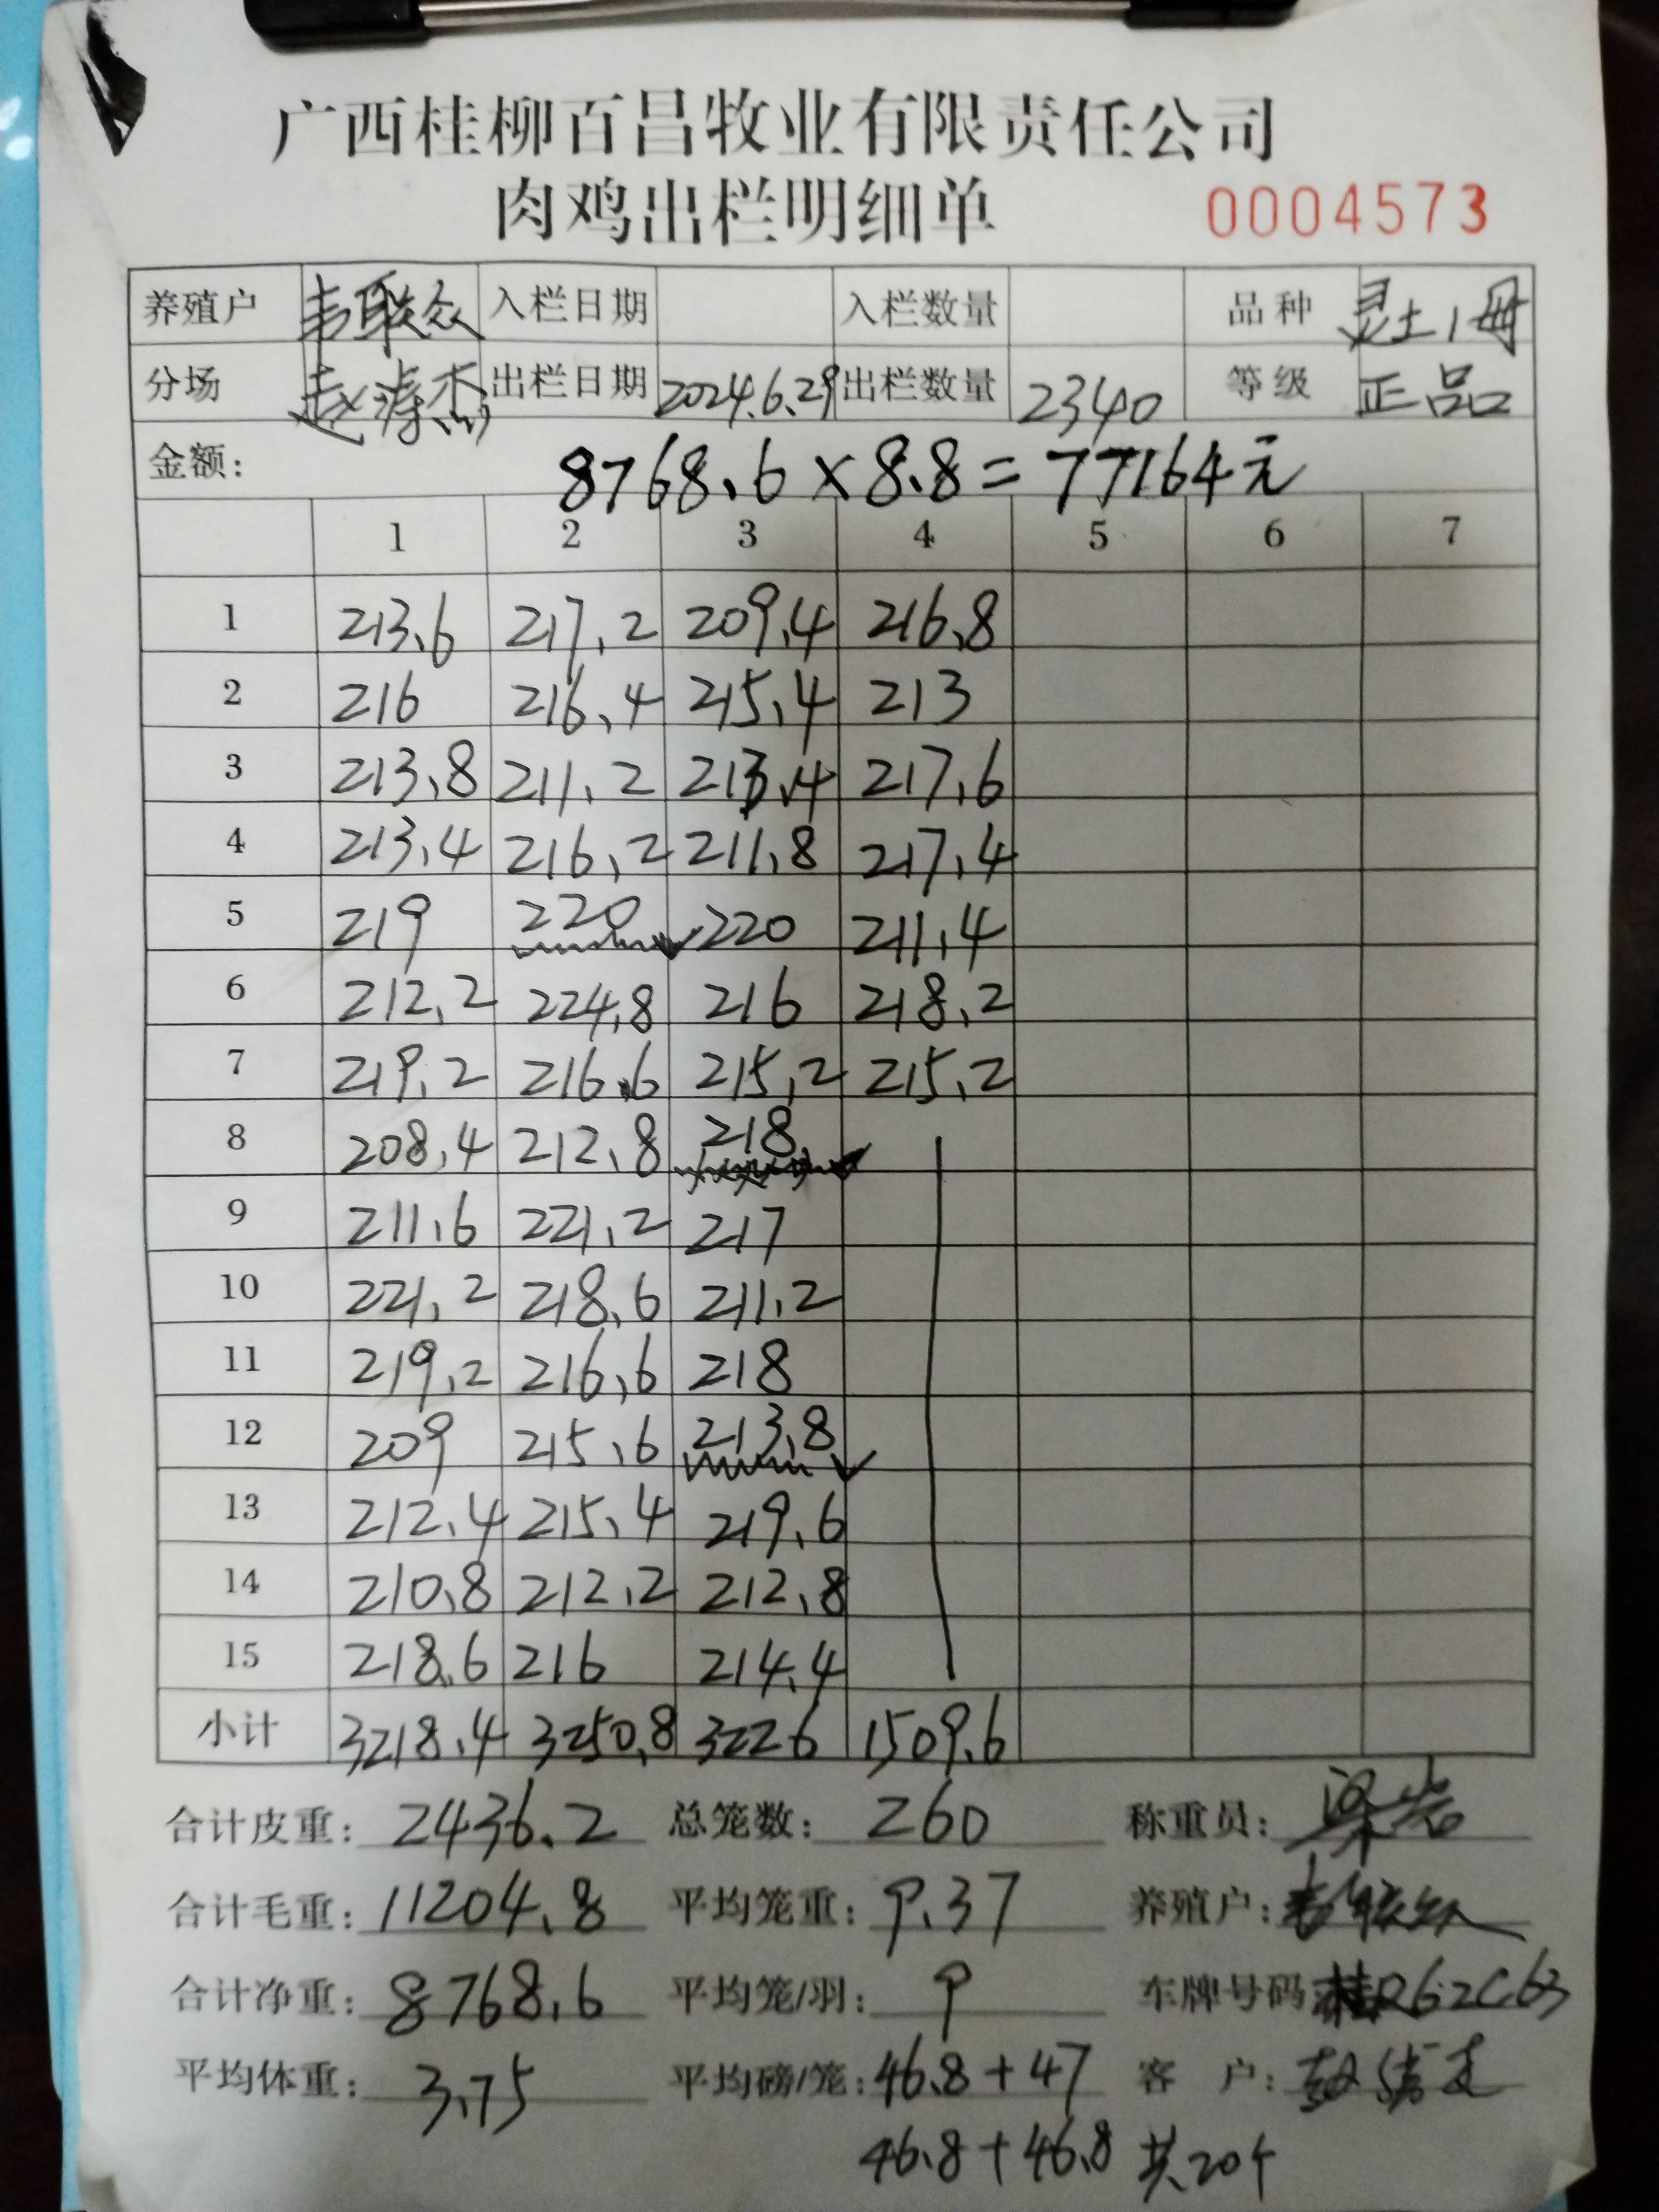 广西桂柳百昌牧业有限责任公司
肉鸡出栏明细单 0004573
养殖户 韦联众 入栏日期 入栏数量 品种 灵土1母
分场 出栏日期 2024.6.29 出栏数量 2340 等级 正品
金额: 8768.6×8.8=77164元
1 2 3 4 5 6 7
1 213.6 217.2 209.4 216.8
2 216 216.4 215.4 213
3 213.8 211.2 213.4 217.6
4 213.4 216.2 211.8 217.4
5 219 220 220 211.4
6 212.2 224.8 216 218.2
7 219.2 216.6 215.2 215.2
8 208.4 212.8 218
9 211.6 221.2 217
10 221.2 218.6 211.2
11 219.2 216.6 218
12 209 215.6 213.8
13 212.4 215.4 219.6
14 210.8 212.2 212.8
15 218.6 216 214.4
小计 3218.4 3250.8 3226 1509.6
合计皮重: 2436.2 总笼数: 260 称重员: 梁岩
合计毛重: 11204.8 平均笼重: 9.37 养殖户: 韦联众
合计净重: 8768.6 平均笼/羽: 9 车牌号码: 桂R62C63
平均体重: 3.75 平均磅/笼: 46.8+47 客户:
46.8+46.8 共20个